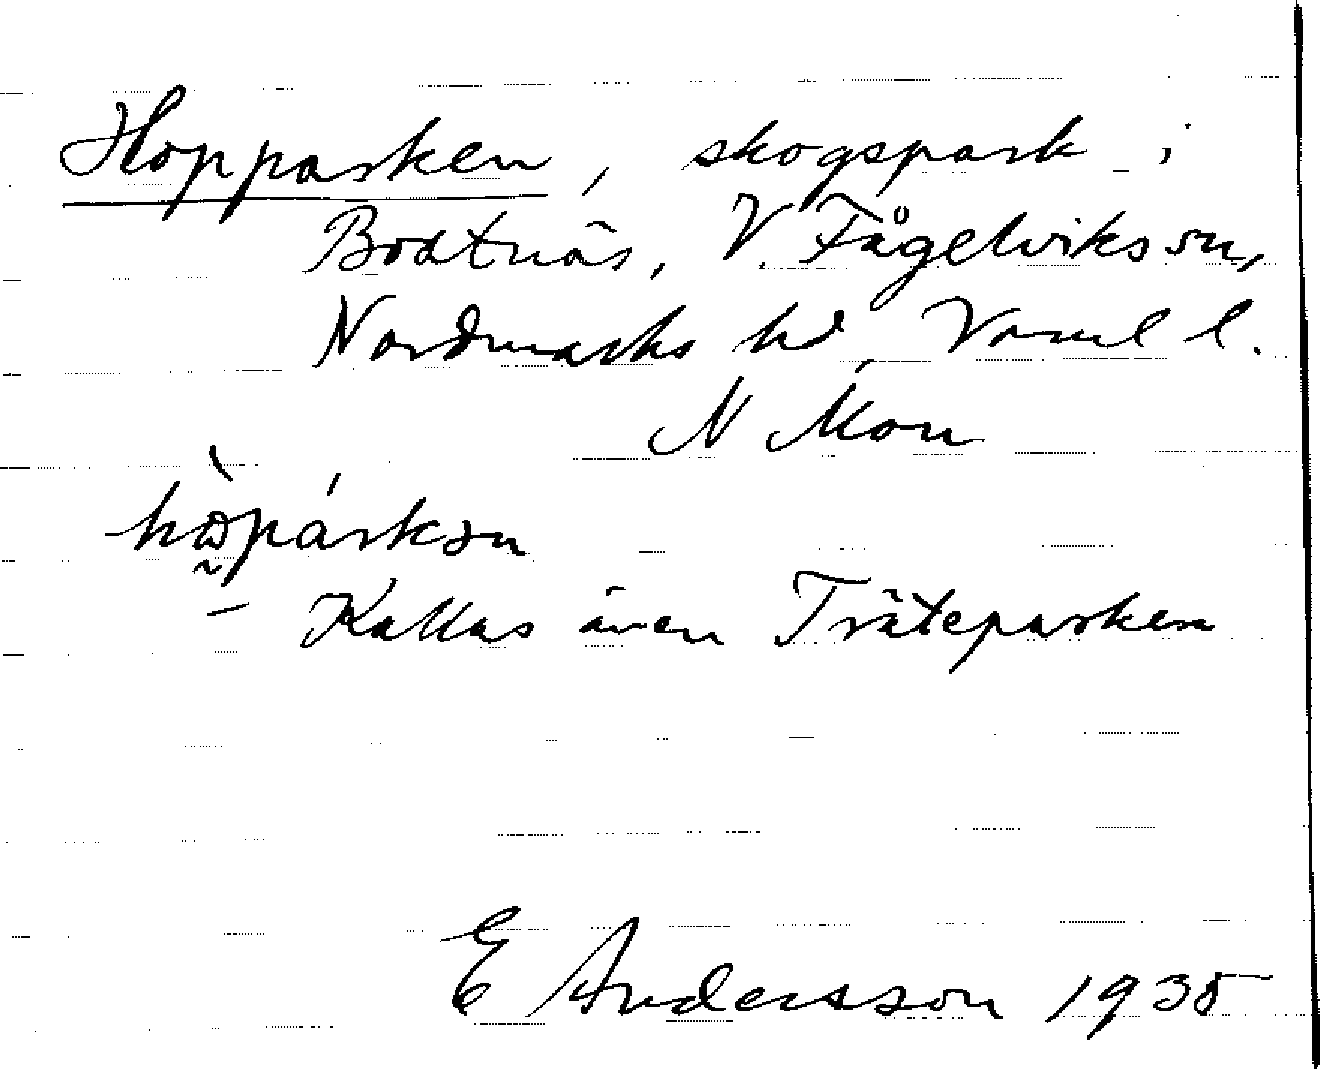 Hopparken, skogspark i
Bodtnäs, V. Fågelviks sn,
Nordmarks hd, Värml l.
N Mon
Kallas även Träteparken
E Andersson 1935